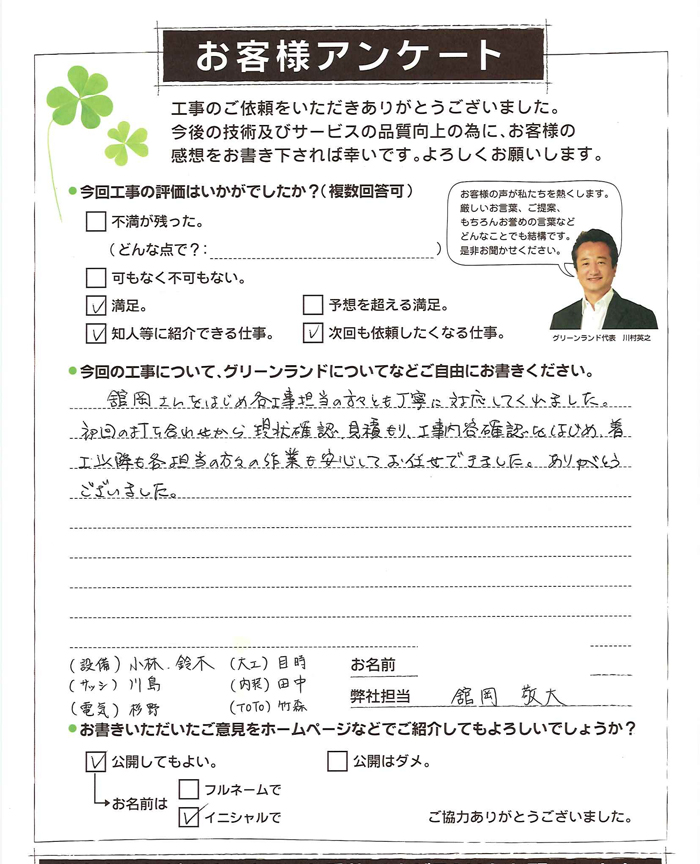 お客様アンケート
工事のご依頼をいただきありがとうございました。
今後の技術及びサービスの品質向上の為に、お客様の
感想をお書き下されば幸いです。よろしくお願いします。
今回工事の評価はいかがでしたか?(複数回答可)
不満が残った。
(どんな点で?: )
可もなく不可もない。
満足。 予想を超える満足。
知人等に紹介できる仕事。 次回も依頼したくなる仕事。
お客様の声が私たちを熱くします。
厳しいお言葉、ご提案、
もちろんお誉めの言葉など
どんなことでも結構です。
是非お聞かせください。
グリーンランド代表 川村英之
今回の工事について、グリーンランドについてなどご自由にお書きください。
舘岡さんをはじめ各工事担当の方々とも丁寧に対応してくれました。
初回の打ち合わせから現状確認、見積もり、工事内容確認をはじめ、着
工以降も各担当の方々の作業も安心してお任せできました。ありがとう
ございました。
(設備)小林、鈴木 (大工)目時
(サッシ)川島 (内装)田中
(電気)杉野 (TOTO)竹森
お名前
弊社担当 舘岡 敬大
お書きいただいたご意見をホームページなどでご紹介してもよろしいでしょうか?
公開してもよい。 公開はダメ。
お名前は フルネームで
イニシャルで
ご協力ありがとうございました。